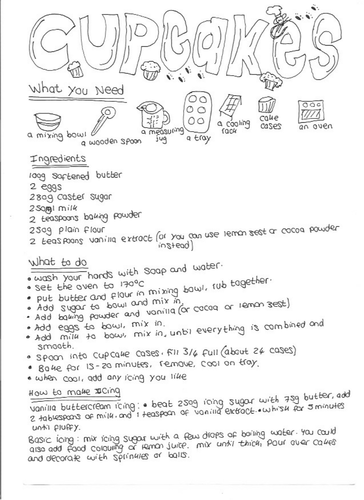 CUPCAKES
What You Need
a mixing bowl
a wooden spoon
a measuring jug
a tray
a cooling rack
cake cases
an oven
Ingredients
100g softened butter
2 eggs
280g caster sugar
250ml milk
2 teaspoons baking powder
250g plain flour
2 teaspoons vanilla extract (or you can use lemon zest or cocoa powder
instead)
What to do
• wash your hands with soap and water.
• Set the oven to 170°C
• put butter and flour in mixing bowl, rub together.
• Add sugar to bowl and mix in.
• Add baking powder and vanilla (or cocoa or lemon zest)
• Add eggs to bowl, mix in.
• Add milk to bowl, mix in, until everything is combined and
smooth.
• Spoon into cupcake cases. fill 3/4 full (about 26 cases)
• Bake for 13-20 minutes. remove, cool on tray.
• when cool, add any icing you like
How to make icing
vanilla buttercream icing: • beat 250g icing sugar with 75g butter, add
2 tablespoons of milk and 1 teaspoon of vanilla extract. • whisk for 5 minutes
until fluffy.
Basic icing: mix icing sugar with a few drops of boiling water. You could
also add food colouring or lemon juice. mix until thick, pour over cakes
and decorate with sprinkles or balls.